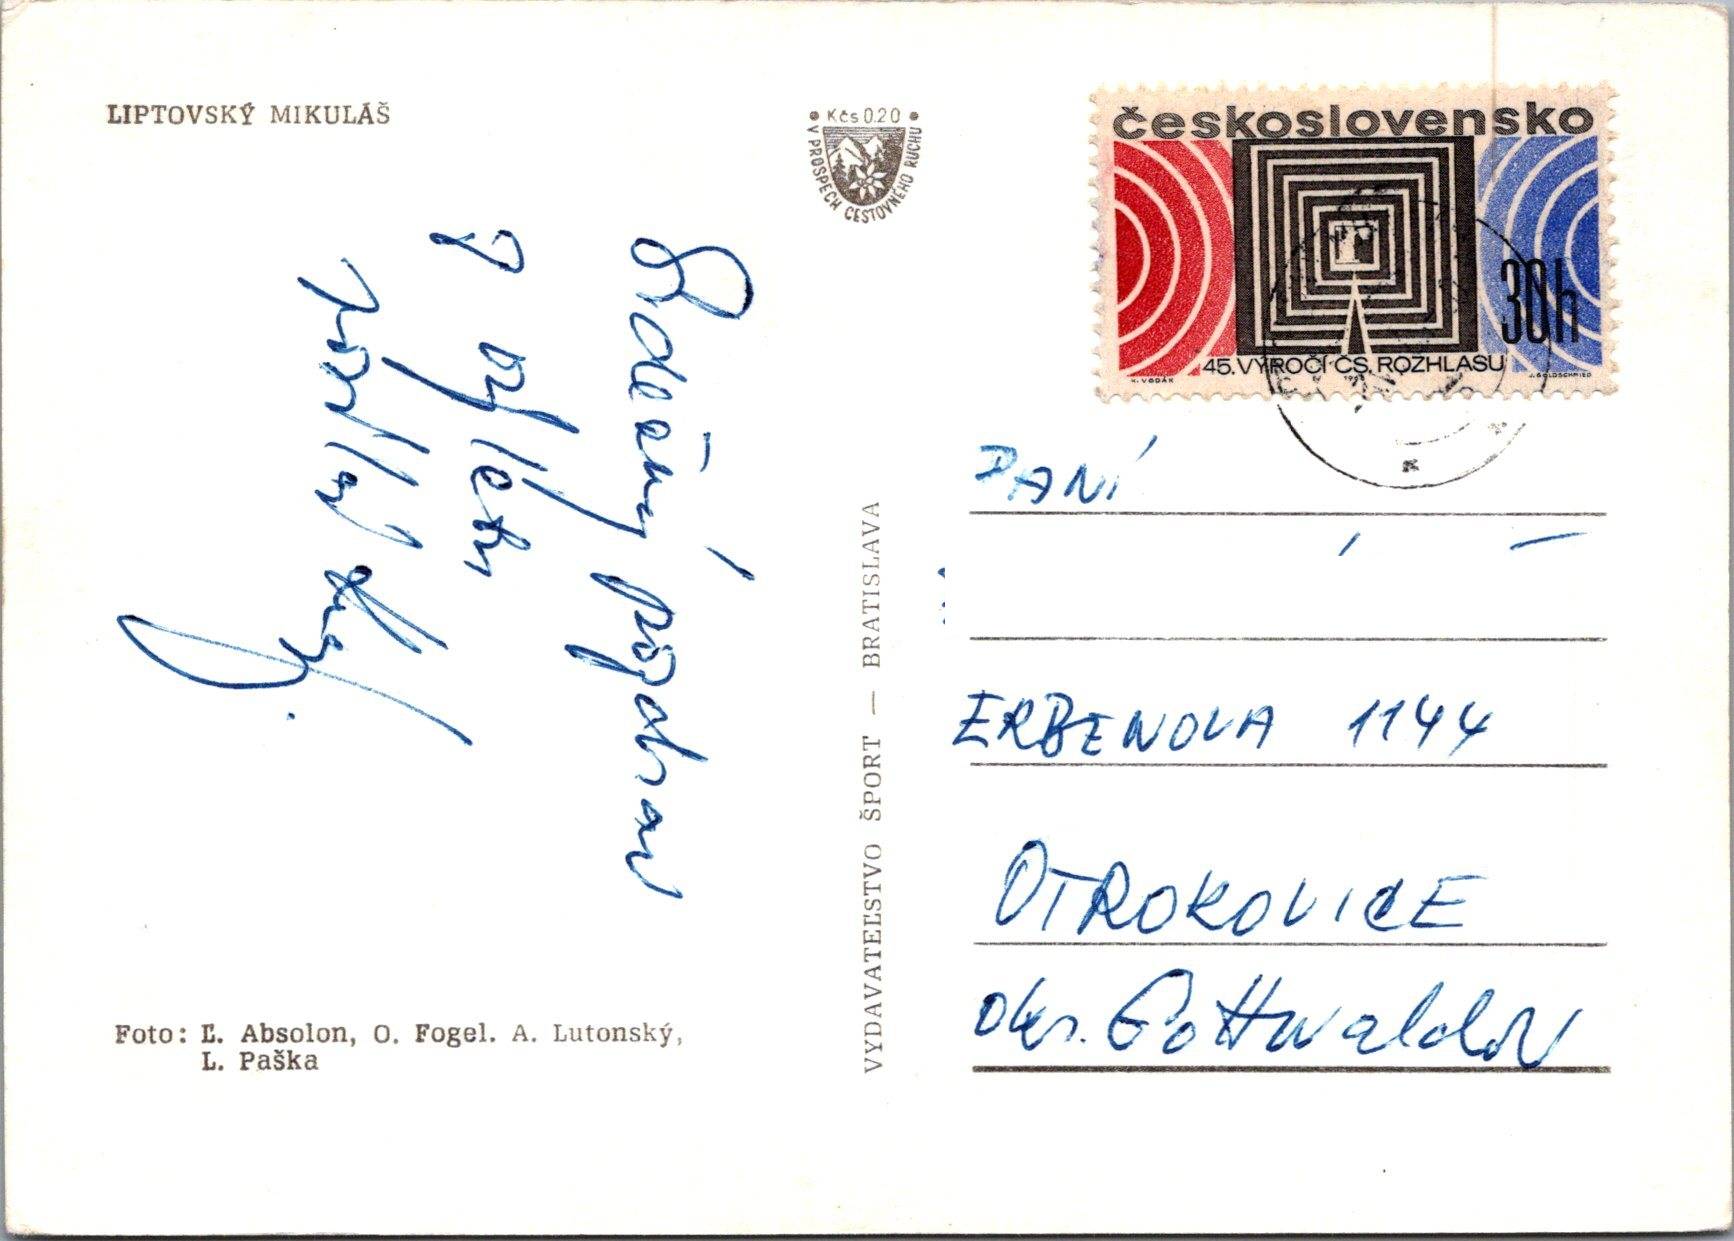 LIPTOVSKÝ MIKULÁŠ
Kčs 0.20
V PROSPECH CESTOVNÉHO RUCHU
Srdečný pozdrav
z výletu
Foto: Ľ. Absolon, O. Fogel. A. Lutonský,
L. Paška
VYDAVATEĽSTVO ŠPORT — BRATISLAVA
československo
30h
45. VÝROČÍ ČS. ROZHLASU
K. VODÁK
J. GOLDSCHMIED
PANÍ
ERBENOVA 1144
OTROKOVICE
okr. Gottwaldov